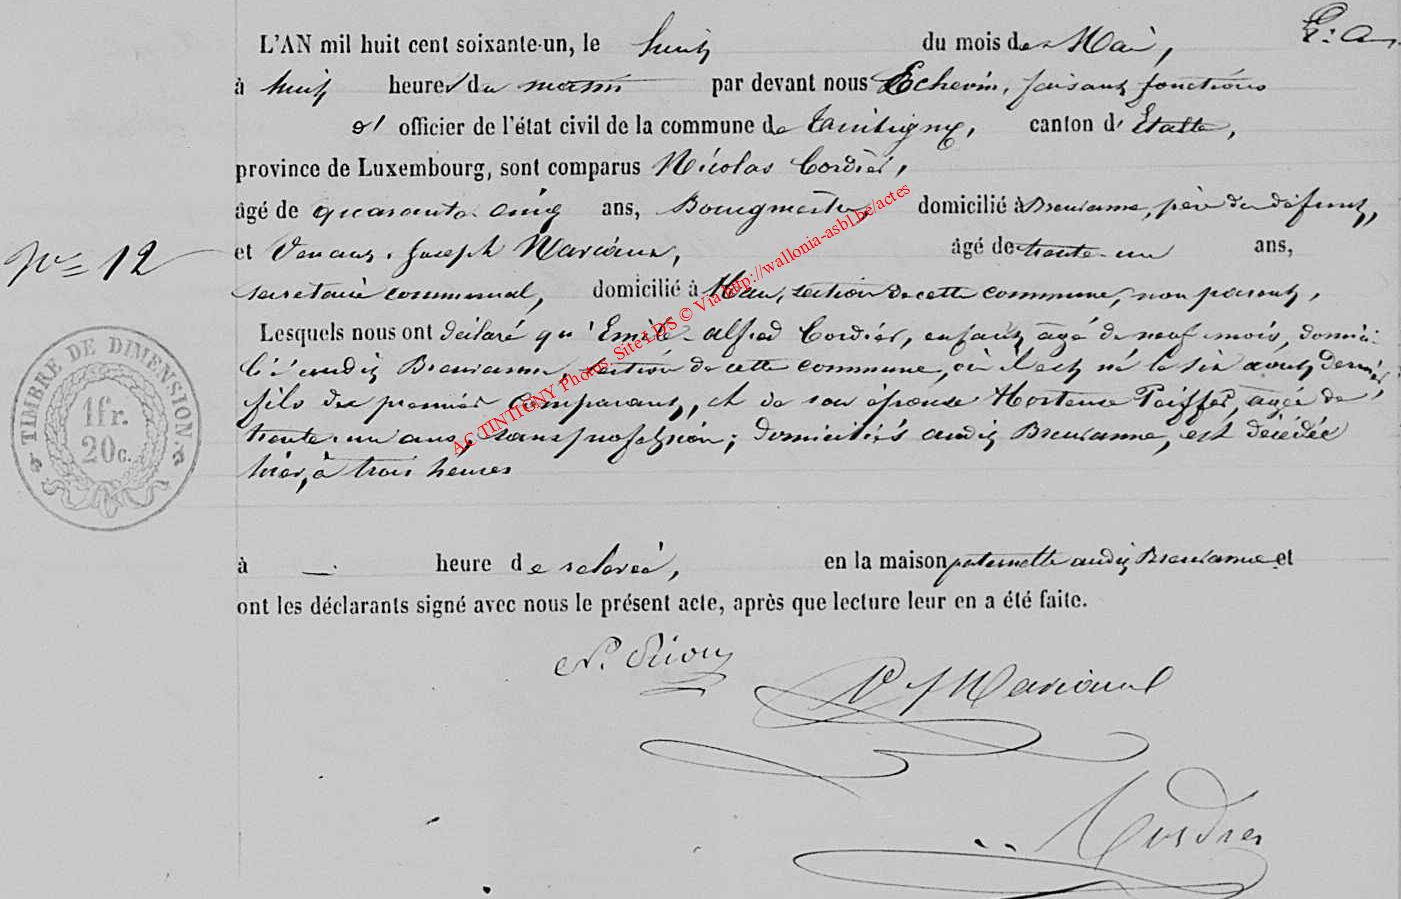 L'AN mil huit cent soixante-un, le huit du mois de Mai,
à huit heures du matin par devant nous Echevin, faisant fonctions
d' officier de l'état civil de la commune de Tintigny, canton d'Etalle,
province de Luxembourg, sont comparus Nicolas Cordier,
âgé de quarante cinq ans, Bourgmestre, domicilié à Breuvanne, père du défunt,
N° 12
et Joseph Mariaux, âgé de trente-un ans,
secrétaire communal, domicilié à Han, section de cette commune, non parent,
Lesquels nous ont déclaré qu'Emile Alfred Cordier, enfant âgé de neuf mois, domici-
lié audit Breuvanne, section de cette commune, où il est né le six août dernier,
fils du premier comparant, et de son épouse Hortense Peiffer, agée de
trente-un ans, sans profession, domiciliés audit Breuvanne, est décédé
hier, à trois heures
à — heure de relevée, en la maison paternelle audit Breuvanne et
ont les déclarants signé avec nous le présent acte, après que lecture leur en a été faite.
Mariaux
Cordier
TIMBRE DE DIMENSION.
1fr.
20c.
AC TINTIGNY Photos. Site LDS © Via http://wallonia-asbl.be/actes